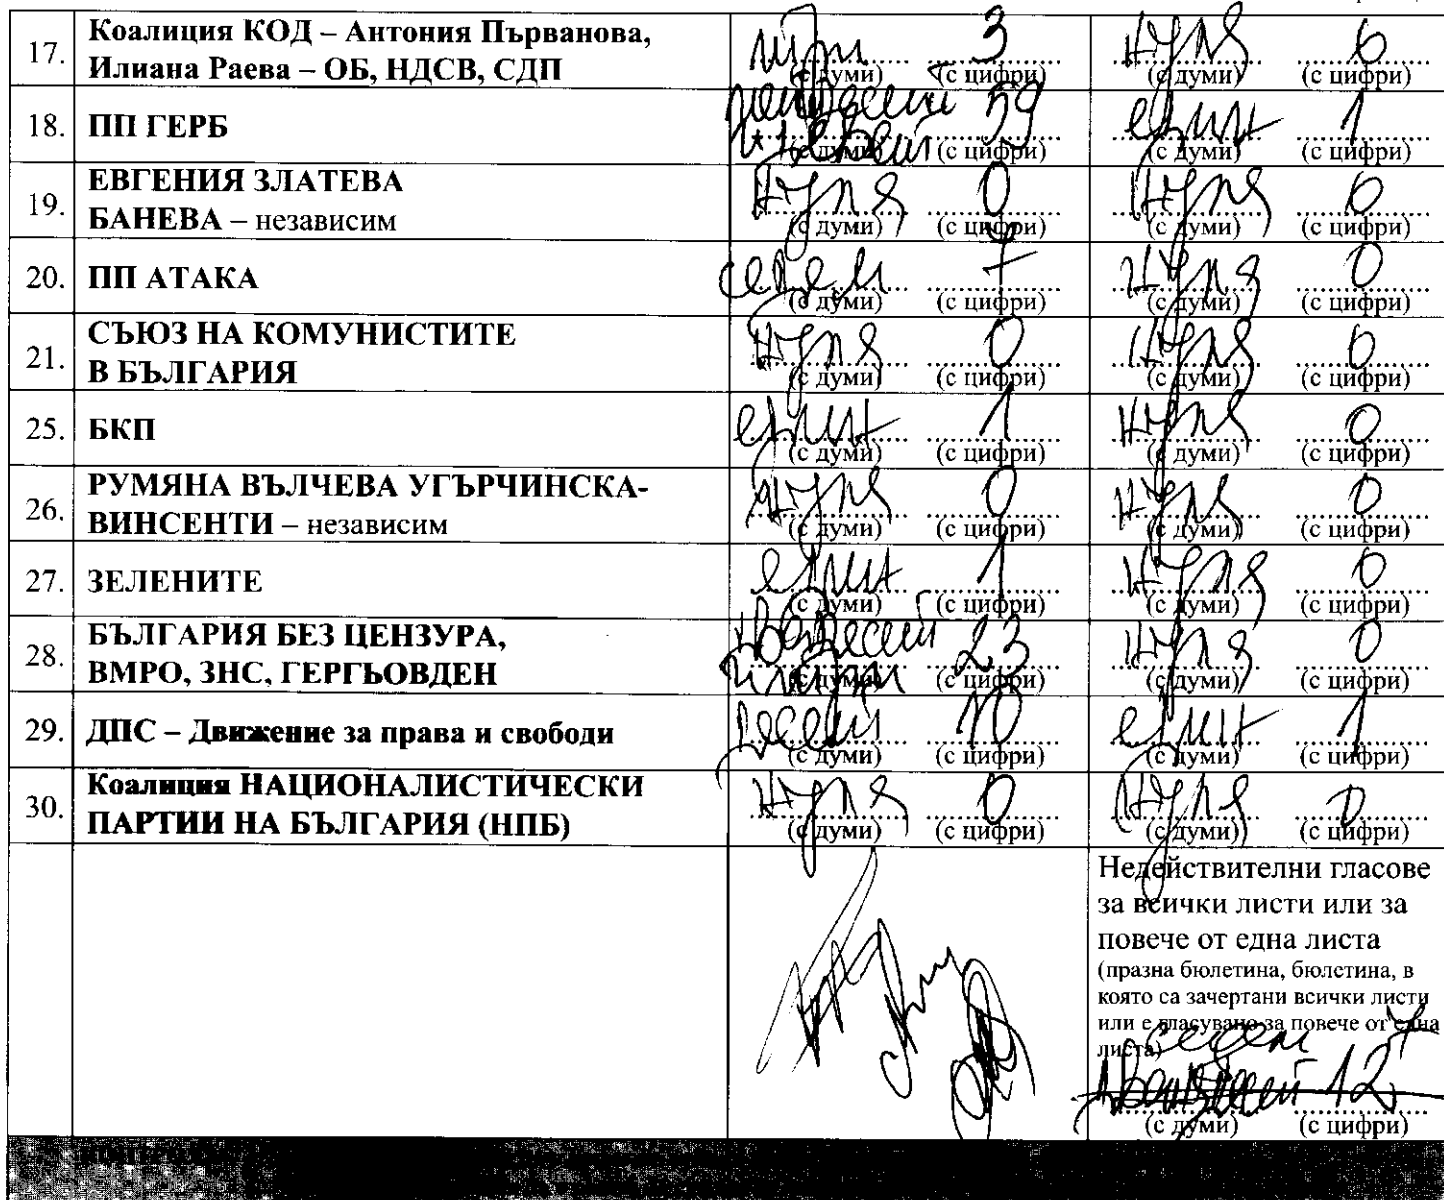 17. Коалиция КОД – Антония Първанова, Илиана Раева – ОБ, НДСВ, СДП три (с думи) 3 (с цифри) нуля (с думи) 0 (с цифри)
18. ПП ГЕРБ петдесет и девет (с думи) 59 (с цифри) един (с думи) 1 (с цифри)
19. ЕВГЕНИЯ ЗЛАТЕВА БАНЕВА – независим нуля (с думи) 0 (с цифри) нуля (с думи) 0 (с цифри)
20. ПП АТАКА седем (с думи) 7 (с цифри) нуля (с думи) 0 (с цифри)
21. СЪЮЗ НА КОМУНИСТИТЕ В БЪЛГАРИЯ нуля (с думи) 0 (с цифри) нуля (с думи) 0 (с цифри)
25. БКП един (с думи) 1 (с цифри) нуля (с думи) 0 (с цифри)
26. РУМЯНА ВЪЛЧЕВА УГЪРЧИНСКА-ВИНСЕНТИ – независим нуля (с думи) 0 (с цифри) нуля (с думи) 0 (с цифри)
27. ЗЕЛЕНИТЕ един (с думи) 1 (с цифри) нуля (с думи) 0 (с цифри)
28. БЪЛГАРИЯ БЕЗ ЦЕНЗУРА, ВМРО, ЗНС, ГЕРГЬОВДЕН двадесет и три (с думи) 23 (с цифри) нуля (с думи) 0 (с цифри)
29. ДПС – Движение за права и свободи десет (с думи) 10 (с цифри) един (с думи) 1 (с цифри)
30. Коалиция НАЦИОНАЛИСТИЧЕСКИ ПАРТИИ НА БЪЛГАРИЯ (НПБ) нуля (с думи) 0 (с цифри) нуля (с думи) 0 (с цифри)
Недействителни гласове
за всички листи или за
повече от една листа
(празна бюлетина, бюлетина, в
която са зачертани всички листи
или е гласувано за повече от една
листа) седем 7
дванадесет 12
(с думи) (с цифри)